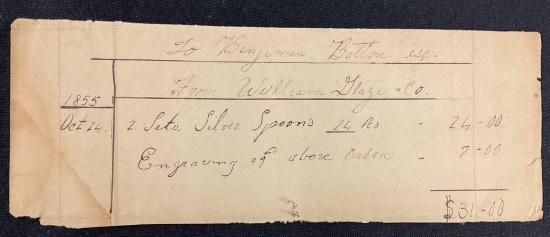 To Benjeman Botton esq.
From William Glaze & Co.
1855
Oct 24. 2 Sets. Silver Spoon's 24 Pcs. - 24-00
Engraving of above Order - 7-00
$31-00